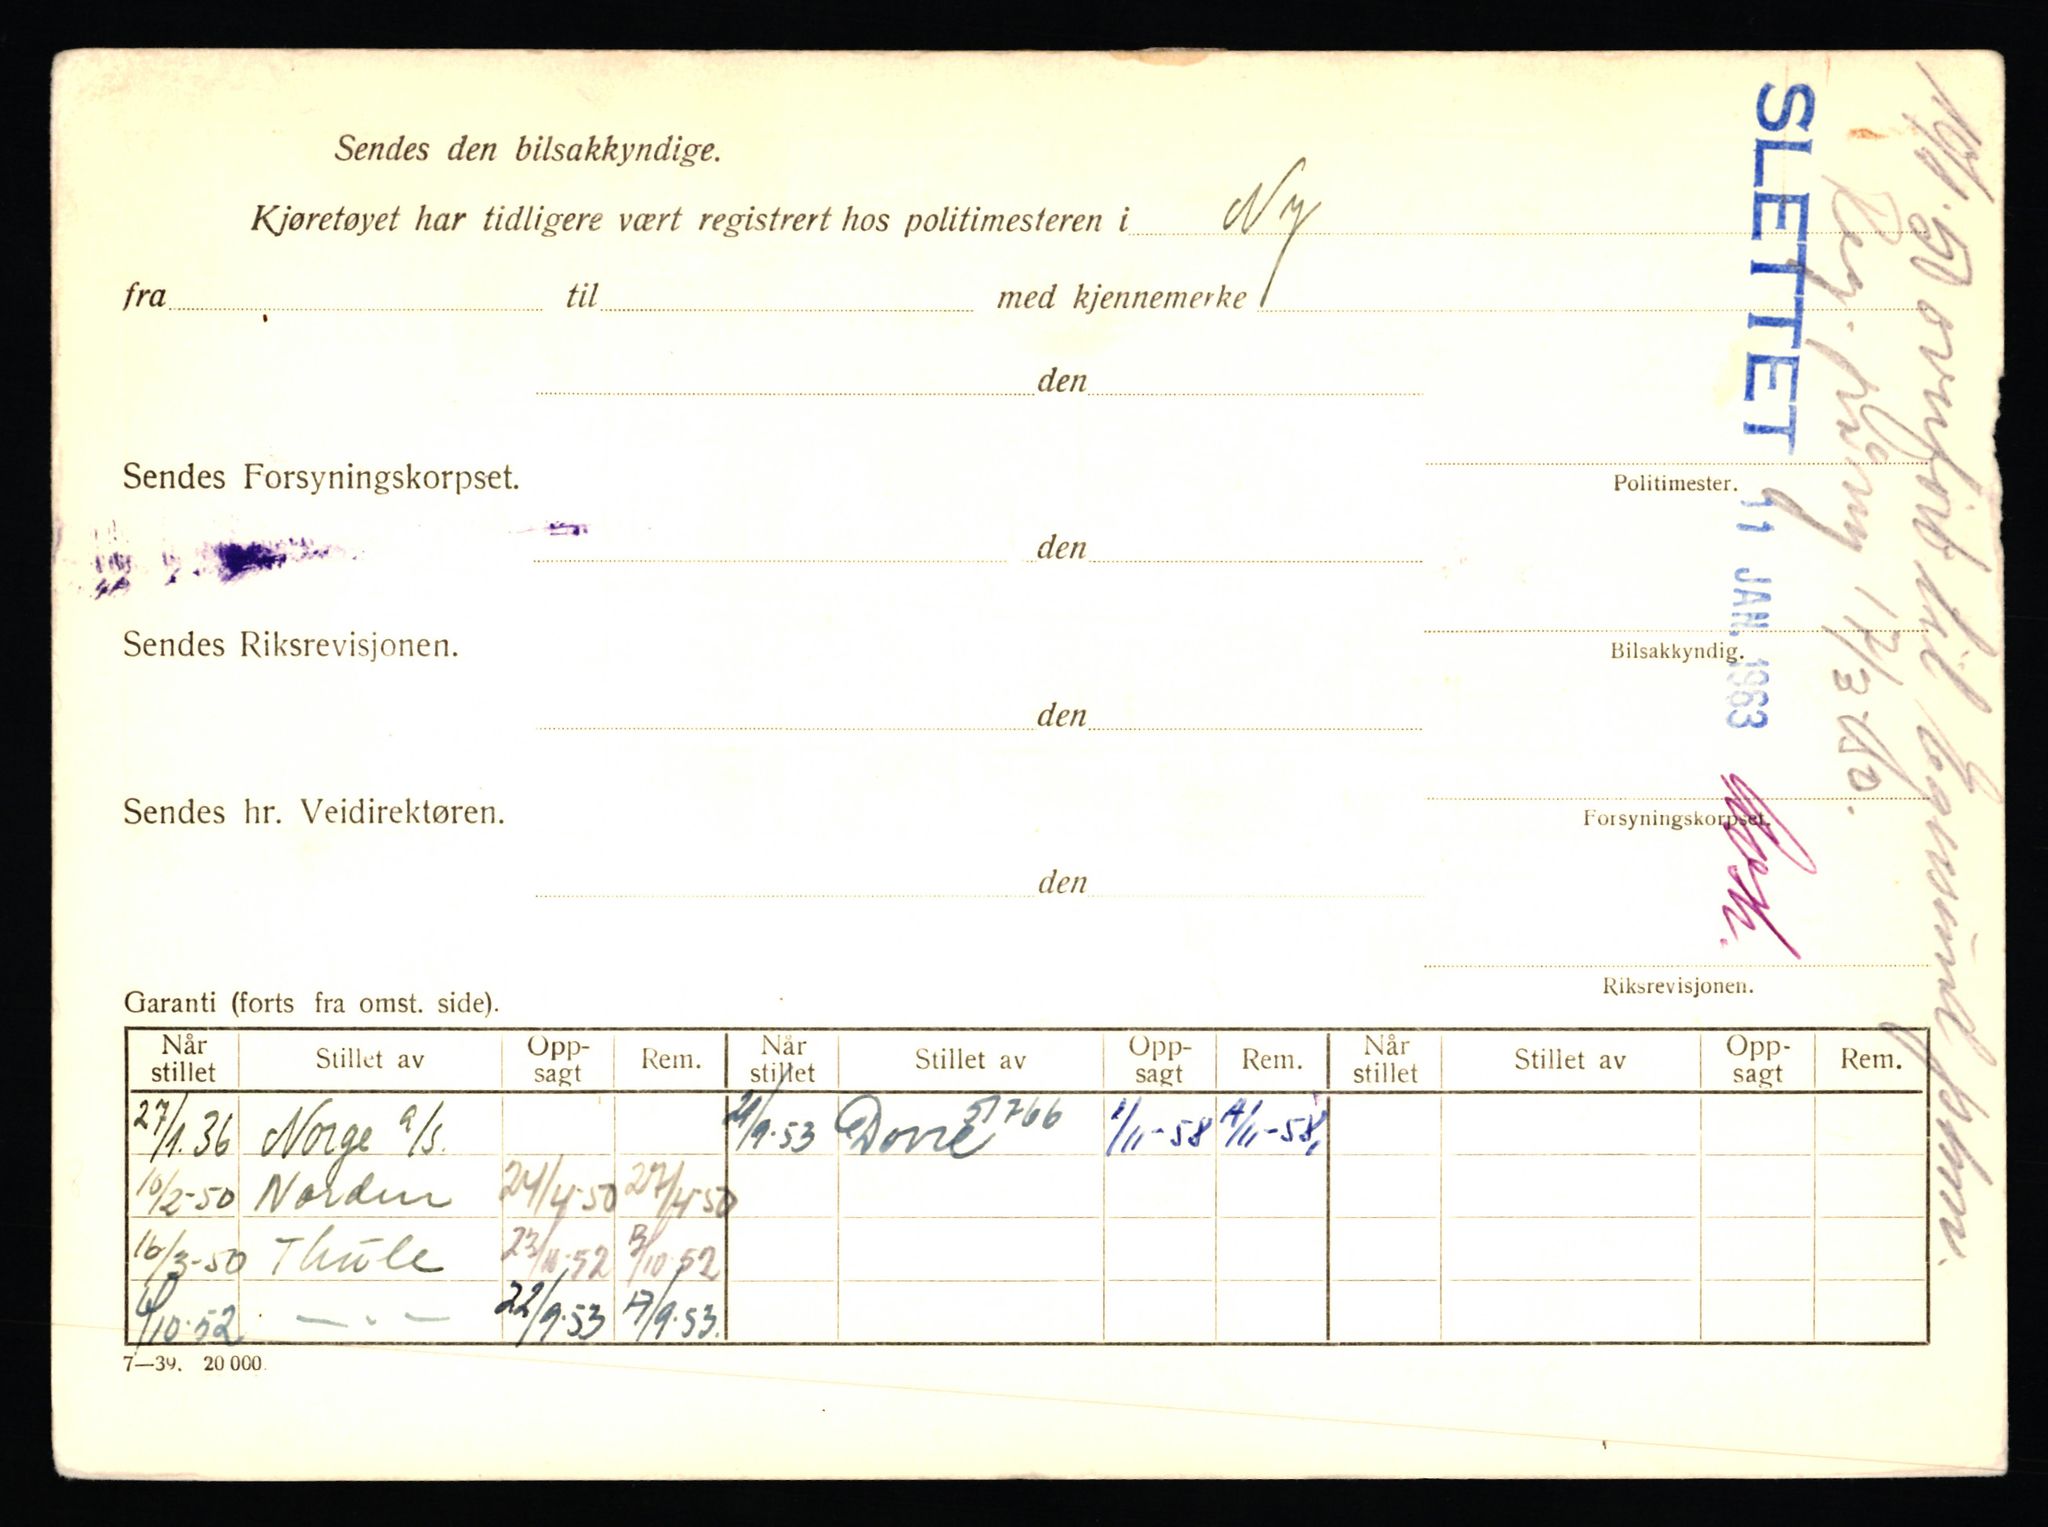 Sendes den bilsakkyndige.
Kjøretøyet har tidligere vært registrert hos politimesteren i Ny
fra til med kjennemerke
den
Sendes Forsyningskorpset.
Politimester.
den
Sendes Riksrevisjonen.
Bilsakkyndig.
den
Sendes hr. Veidirektøren.
Forsyningskorpset.
den
Riksrevisjonen.
SLETTET 11 JAN. 1963
Reg. 17/3 50.
Garanti (forts fra omst. side).
Når stillet Stillet av Opp-sagt Rem. Når stillet Stillet av Opp-sagt Rem. Når stillet Stillet av Opp-sagt Rem.
27/1.36 Norge a/s. 21/9.53 Dovre 51766 1/11-58 4/11-58,
10/2-50 Norden 24/4-50 27/4-50
16/3-50 Thule 23/10.52 3/10.52
/10.52 — . — 22/9.53 17/9.53.
7—39. 20 000.